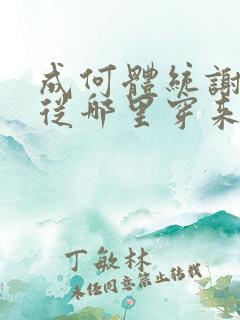 成何體統謝
從那里穿来
丁敏林
未经同意禁止转载